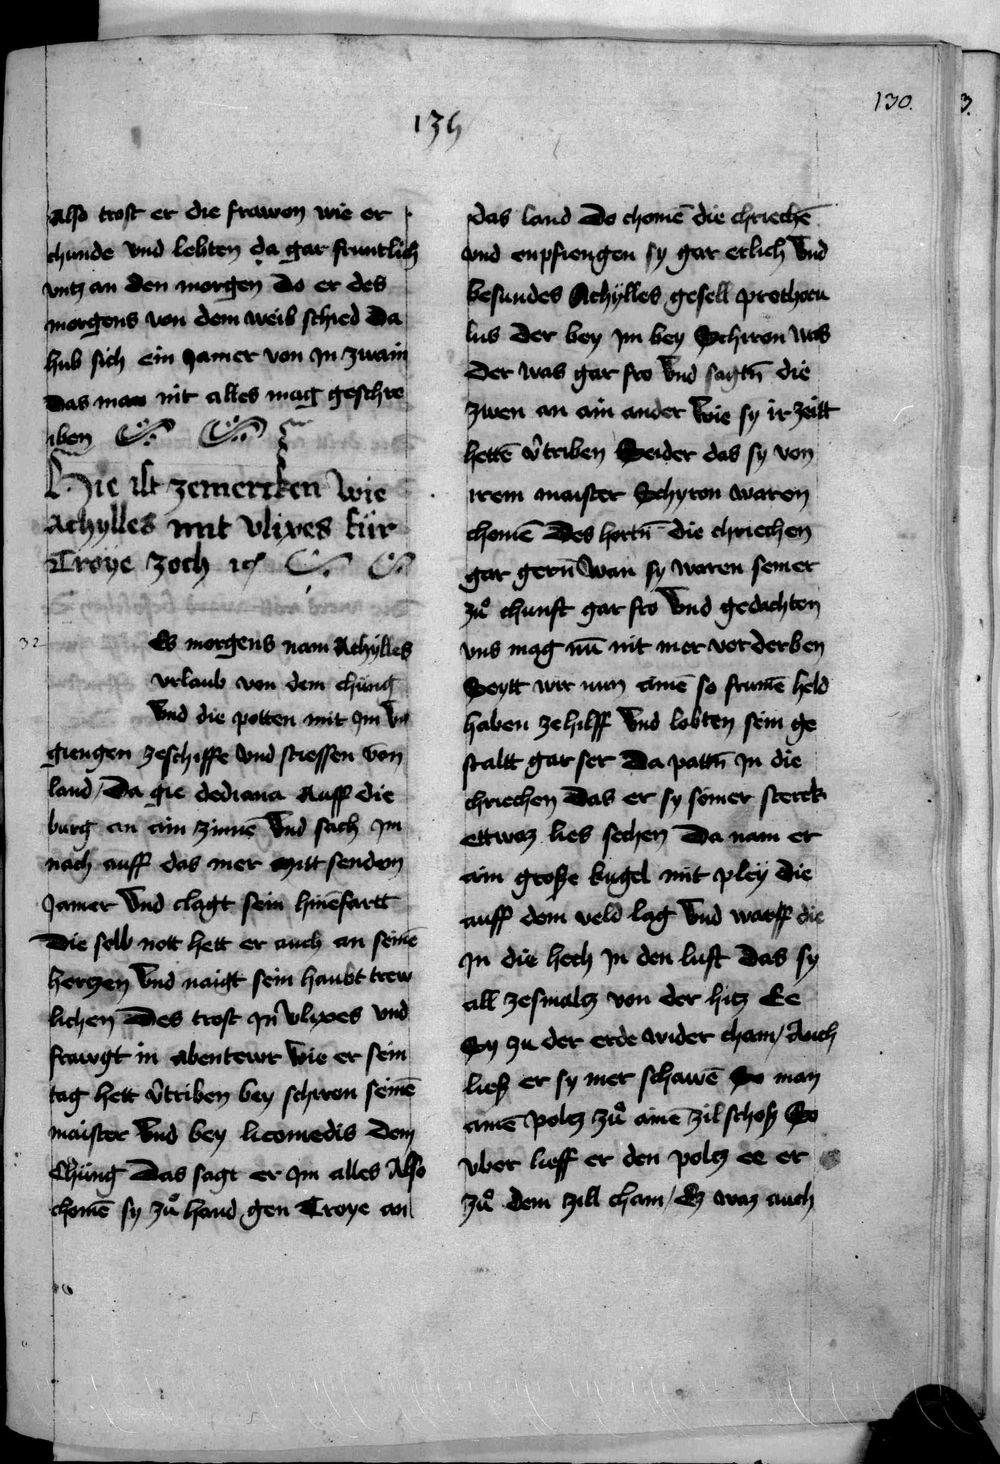 130.
3.
139
Also trost er die frawen wie er
chunde vnd lebten da gar fruntlich
vntz an den morgen Do er des
morgens von dem weib schied Da
hub sich ein Jamer von In zwain
Das man nit alles mag geschre
iben
Hie ist zemercken wie
Achylles mit vlixes für
Troye zoch
32
Es morgens nam Achylles
vrlaub von dem chüng
Vnd die potten mit Im Vn
giengen zeschiffe Vnd stiessen von
land / Da gie dediana Auff die
burg an ain zinne Vnd sach Im
nach auff das mer mitt sendem
Jamer Vnd clagt sein hinefartt
Die selb nott hett er auch an seinē
hertzen Vnd naigt sein haubt trew
lichen Des trost In Vlixes vnd
frawgt in abentewr Wie er sein
tag hett v̄triben bey schiron seinē
maister Vnd bey licomedis dem
Chüng Das sagt er Im alles Also
chomē sy zů hand gen Troye an
das land Do chomē die chriechē
vnd enpfiengen sy gar erlich Vnd
besundes Achÿlles gesell prothoeu
lus der bey Im bey Schiron was
Der was gar fro Vnd sagtn̄ die
zwen an ain ander Wie sy ir zeitt
hettē v̄triben Seider das sy von
irem maister Schyron waren
chomē Des hortn̄ die chriechen
gar gern̄ Wan sy waren seiner
zů chunft gar fro Vnd gedachten
vns mag nū nit mer verderben
Seytt wir nun ainē so frumē held
haben ze hilff Vnd lobten sein ge
staltt gar ser Da pattn̄ In die
chriechen Das er sy seiner sterck
ettwaz lies sechen Da nam er
ain große kugel mit pley die
auff dem veld lag Vnd warff die
In die hech In den luft Das sy
all zesmaltz von der hitz Ee
Sy zu der erde wider cham / Auch
ließ er sy mer schawē So man
ainē poltz zů ainē zil schoß So
vber lieff er den poltz ee er
zů dem zill cham / Ez waz auch